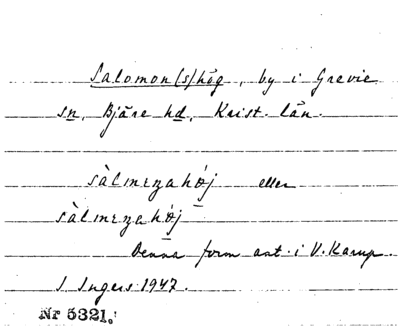 Salomon(s)hög, by i Grevie
sn, Bjäre hd, Krist. län.
sàlmɛzahǿj eller
sàlmɛzahǿj
Denna form ant. i V. Karup.
I. Ingers 1947.
Nr 5321.